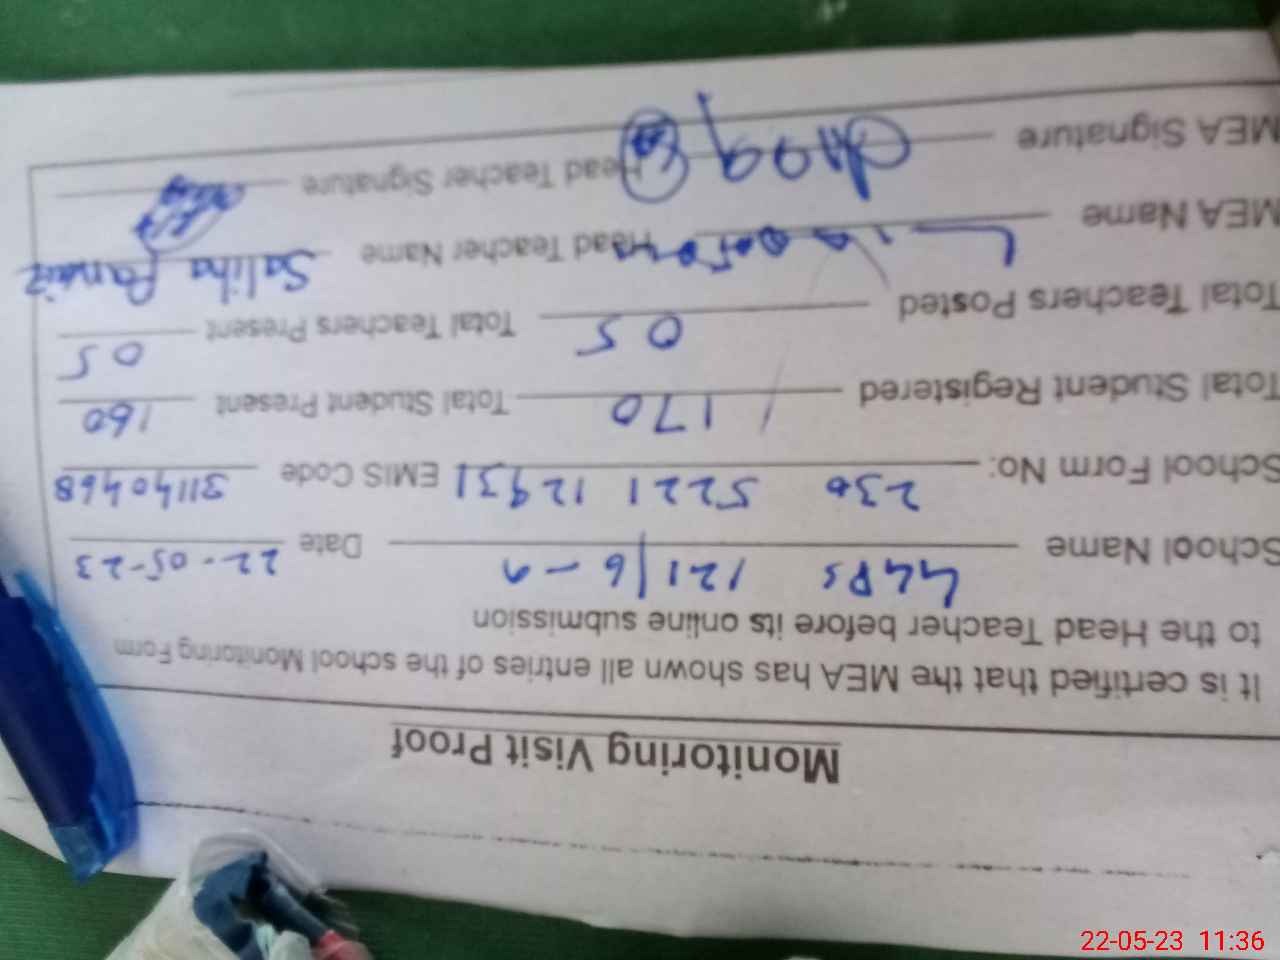 Monitoring Visit Proof
It is certified that the MEA has shown all entries of the school Monitoring Form
to the Head Teacher before its online submission
School Name GGPS 121/6-R Date 22-05-23
School Form No: 230 5221 12931 EMIS Code 31140468
Total Student Registered 170 Total Student Present 160
Total Teachers Posted 05 Total Teachers Present 05
MEA Name Head Teacher Name Saliha Parvaiz
MEA Signature Head Teacher Signature
22-05-23 11:36